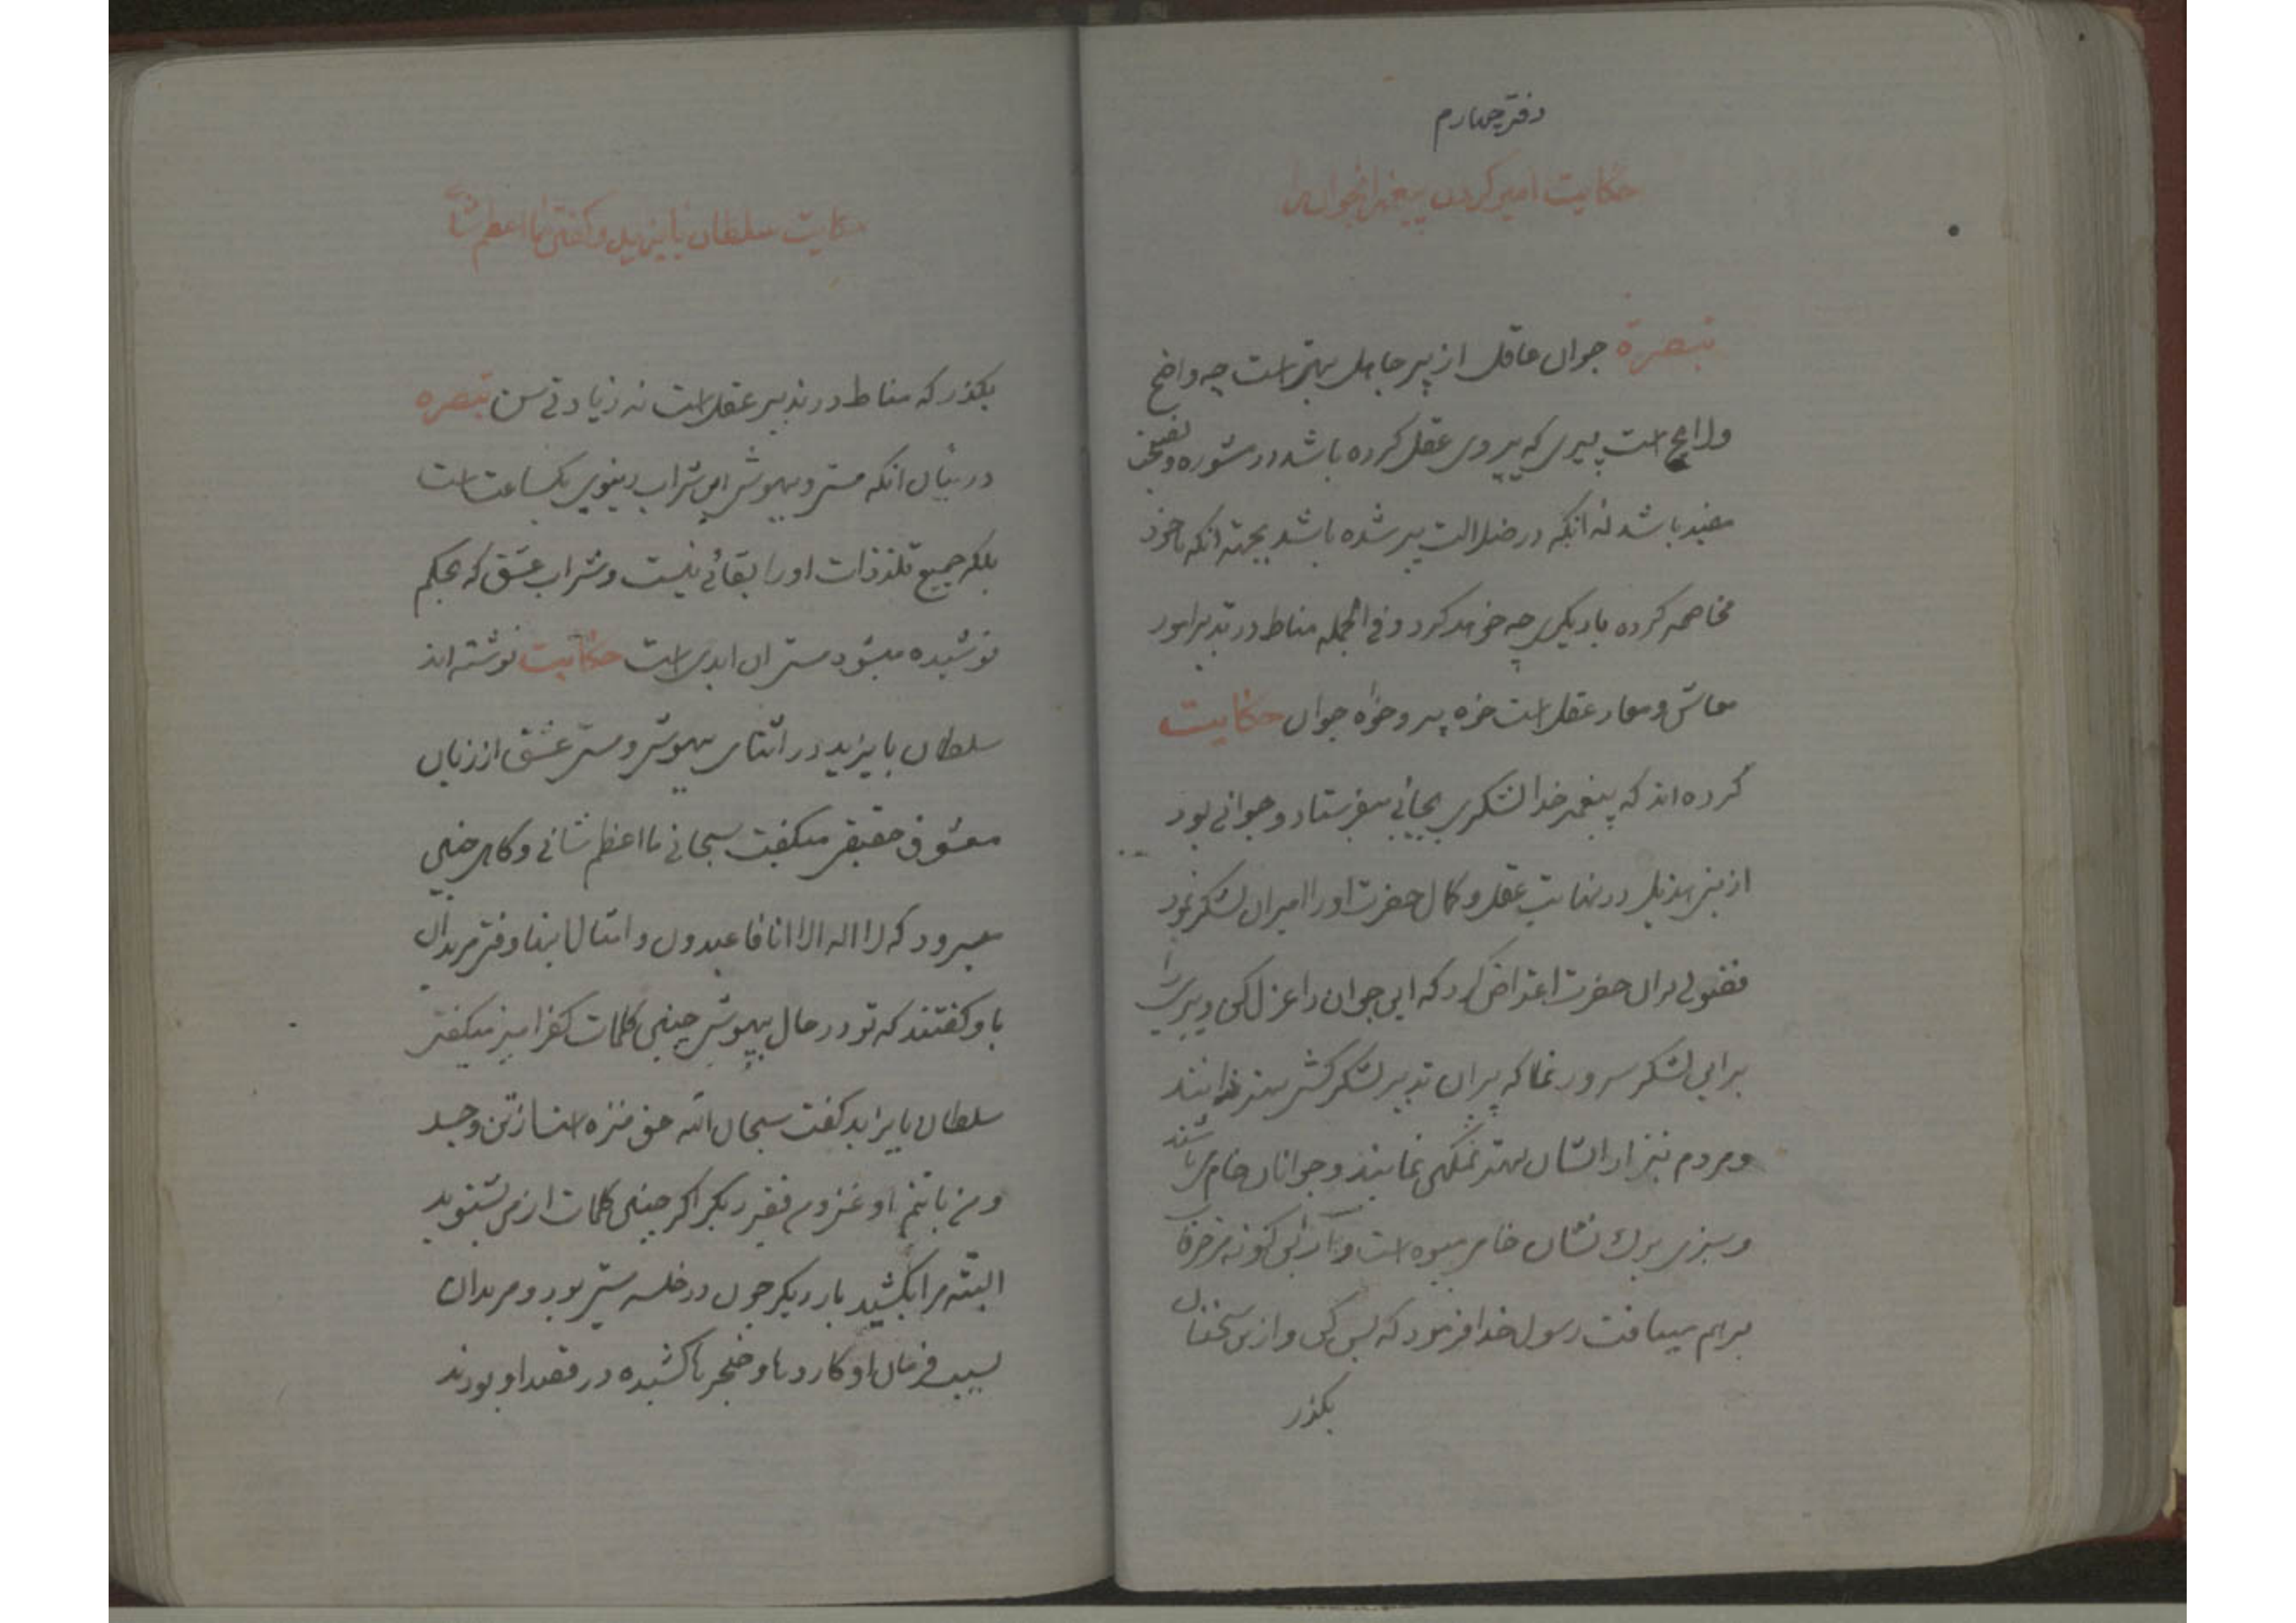 دفتر چهارم
حکایت امیر کردن پیغمبر انجوان را
تبصرة جوان عاقل از پیر جاهل بهتر است چه واضح
ولایح است پیری که پیروی عقل کرده باشد در مشوره و نصیحت
مفید باشد نه انکه در ضلالت پیر شده باشد بجهته انکه با خود
مخاصمه کرده بادیکری چه خواهد کرد و فی الجمله مناط در تدبیر امور
معاش و معاد عقل است خواه پیر و خواه جوان حکایت
کرده اند که پیغمبر خدا لشکری بجائی میفرستاد و جوانی بود
از بنی هذیل در نهایت عقل و کمال حضرت او را امیر ان لشکر نمود
فضولی بران حضرت اعتراض کرد که این جوان را عزل کن و پیری را
بر این لشکر سرور نما که پیران تدبیر لشکر کشی بهتر دانند
و مردم نیز از ایشان بهتر تمکین نمایند و جوانان خام می باشند
و سبزی برک نشان خامی میوه است و از این کونه مزخرفات
برهم میبافت رسول خدا فرمود که بس کن و از این سخنان
بکذر
حکایت سلطان بایزید و کفتن ما اعظم شأنی
بکذر که مناط در تدبیر عقل است نه زیادتی سن تبصره
در بیان انکه مستی و بیهوشی این شراب دنیوی یکساعت است
بلکه جمیع تلذذات او را بقائی نیست و شراب عشق که بحکم
نوشیده میشود مستی ان ابدی است حکایت نوشته اند
سلطان بایزید در اثنای بیهوشی و مستی عشق از زبان
معشوق حقیقی میکفت سبحانی ما اعظم شانی و کاهی چنین
میسرود که لا اله الا انا فاعبدون و امثال اینها وقتی مریدان
باو کفتند که تو در حال بیهوشی چنین کلمات کفر امیز میکفتی
سلطان بایزید کفت سبحان الله حق منزه است از تن و جسد
و من با تنم او غنی و من فقیر دیکر اکر چنین کلمات از من بشنوید
البته مرا بکشید بار دیکر چون در خلسه مستی بود و مریدان
بسبب فرمان او کاردها و خنجرها کشیده در قصد او بودند